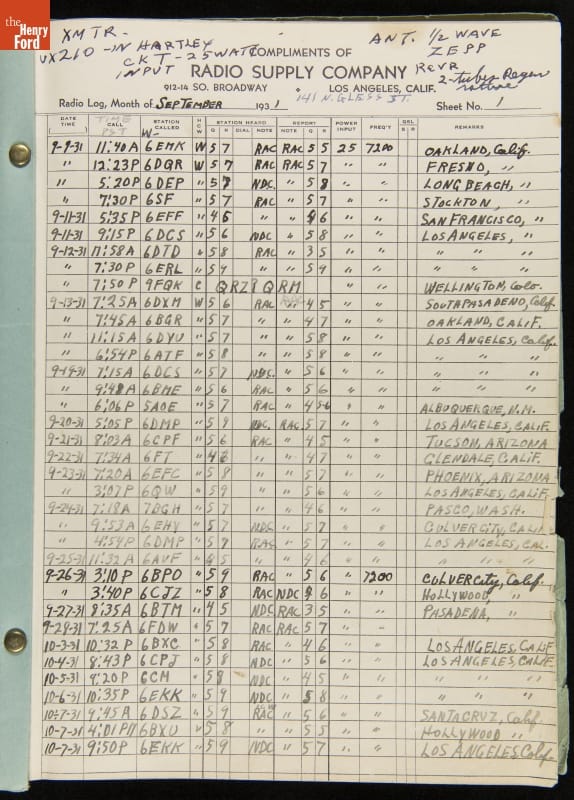 the
Henry
Ford
XMTR- ANT. 1/2 WAVE
UX210-IN HARTLEY ZEPP
CKT-25 WATT COMPLIMENTS OF
INPUT RADIO SUPPLY COMPANY RECVR
2-tubes Regen
912-14 SO. BROADWAY LOS ANGELES, CALIF.
141 N. GLESS ST.
Radio Log, Month of SEPTEMBER 1931 Sheet No. 1
DATE TIME STATION STATION HEARD REPORT POWER FREQ'Y QSL REMARKS
(TIME) CALL PST CALLED W- Q R DIAL NOTE NOTE Q R INPUT S R
9-9-31 11:40A 6EMK W 5 7 RAC RAC 5 5 25 7200 OAKLAND, Calif.
" 12:23P 6DGR W 5 7 RAC RAC 5 7 " " FRESNO, "
" 5:20P 6DEP " 5 7 NDC. " 5 8 " " LONG BEACH, "
" 7:30P 6SF " 5 7 RAC " 5 7 " " STOCKTON, "
9-11-31 5:35P 6EFF " 4 5 " " 4 6 " " SAN FRANCISCO, "
9-11-31 9:15P 6DCS " 5 6 NDC " 5 8 " " LOS ANGELES, "
9-12-31 11:58A 6DTD " 5 8 RAC " 3 5 " " " " "
" 7:30P 6ERL " 5 9 " " 5 9 " " " " "
" 7:50P 9FQK C QRZ? QRM " " WELLINGTON, Colo.
9-13-31 7:25A 6DXM W 5 6 RAC RAC 4 5 " " SOUTH PASADENO, Calif.
" 7:45A 6BGR " 5 7 " " 4 7 " " OAKLAND, CALIF.
" 11:15A 6DYU " 5 7 " " 5 8 " " LOS ANGELES, Calif.
" 6:54P 6ATF " 5 8 " " 5 8 " " " " "
9-19-31 7:15A 6DCS " 5 7 NDC. " 5 6 " " " " "
" 9:48A 6BME " 5 6 RAC " 5 6 " " " " "
" 6:06P 5AOE " 5 7 RAC " 4 5-6 " " ALBUQUERQUE, N.M.
9-20-31 5:05P 6DMP " 5 9 NDC. RAC. 5 7 " " LOS ANGELES, CALIF.
9-21-31 8:03A 6CPF " 5 6 RAC " 4 5 " " TUCSON, ARIZONA
9-22-31 7:34A 6FT " 4 6 " " 4 7 " " GLENDALE, CALIF.
9-23-31 7:20A 6EFC " 5 8 " " 5 7 " " PHOENIX, ARIZONA
" 3:07P 6QW " 5 9 " " 5 6 " " LOS ANGELES, CALIF.
9-24-31 7:18A 7BGH " 5 7 " " 4 6 " " PASCO, WASH.
" 9:53A 6EHY " 5 7 NDC " 5 7 " " CULVER CITY, CALIF.
" 4:54P 6DMP " 5 7 RAC " 5 7 " " LOS ANGELES, CAL.
9-25-31 11:32A 6AVF " 4 5 " " 4 6 " " " " "
9-26-31 3:10P 6BPO " 5 9 RAC " 5 6 " 7200 CULVER City, Calif.
" 3:40P 6CJZ " 5 8 RAC NDC 4 6 " " HOLLYWOOD, "
9-27-31 8:35A 6BTM " 4 5 NDC RAC 3 5 " " PASADENA, "
9-28-31 7:25A 6FDW " 5 7 RAC RAC 5 7 " "
10-3-31 10:32P 6BXC " 5 8 RAC " 4 6 " " LOS ANGELES, CALIF
10-4-31 8:43P 6CPJ " 5 8 NDC " 5 6 " " LOS ANGELES, CALIF.
10-5-31 9:20P 6CM " 5 8 NDC " 4 5 " " " " "
10-6-31 10:35P 6EKK " 5 9 NDC " 5 8 " " " " "
10-7-31 9:45A 6DSZ " 5 9 RAC " 5 6 " " SANTA CRUZ, Calif.
10-7-31 4:01P 6BXU " 5 8 " " 5 5 " " HOLLYWOOD "
10-7-31 9:50P 6EKK " 5 9 NDC " 5 7 " " LOS ANGELES Calif.